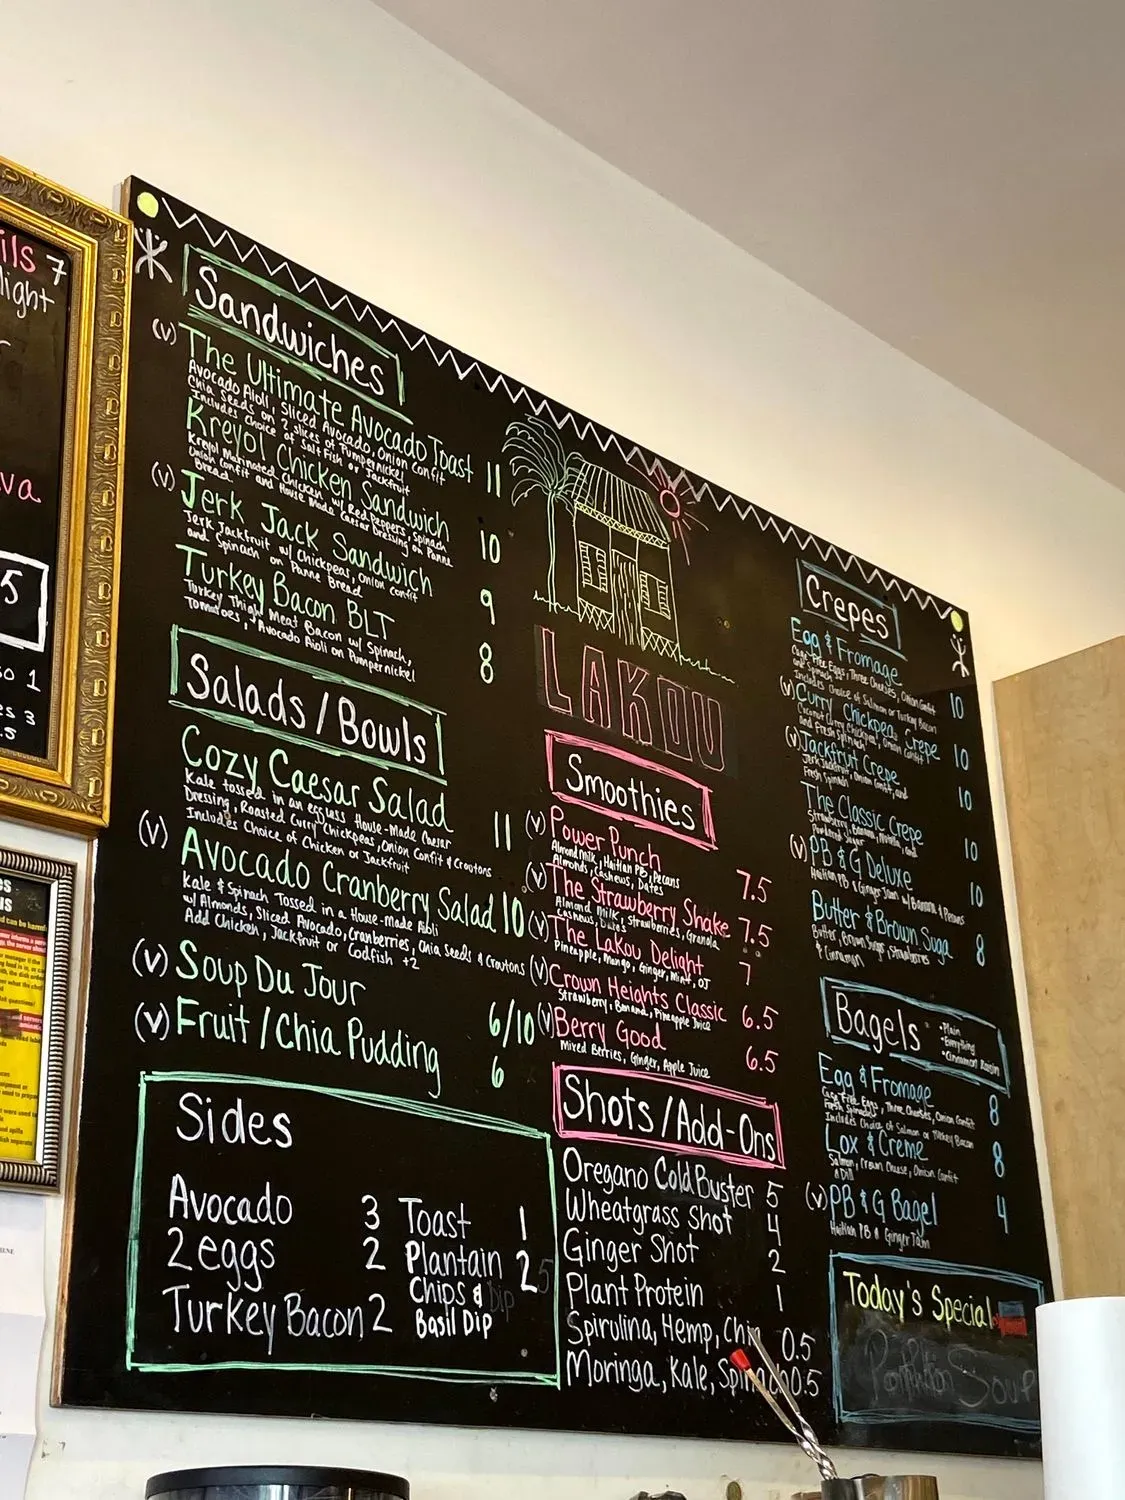 ils 7
light
va
5
so 1
es 3
.5
Sandwiches
(v) The Ultimate Avocado Toast 11
Avocado Aioli, Sliced Avocado, Onion Confit
Chia Seeds on 2 slices of Pumpernickel
Includes Choice of Saltfish or Jackfruit
Kreyol Chicken Sandwich 10
Kreyol Marinated Chicken w/ Red Peppers, Spinach
Onion Confit and House Made Caesar Dressing on Panne
Bread
(v) Jerk Jack Sandwich 9
Jerk Jackfruit w/ Chickpeas, Onion Confit
and Spinach on Panne Bread
Turkey Bacon BLT 8
Turkey Thigh Meat Bacon w/ Spinach,
Tomatoes, + Avocado Aioli on Pumpernickel
Salads / Bowls
Cozy Caesar Salad 11
Kale tossed in an eggless House-Made Caesar
Dressing, Roasted Curry Chickpeas, Onion Confit & Croutons
Includes Choice of Chicken or Jackfruit
(v) Avocado Cranberry Salad 10
Kale & Spinach Tossed in a House-Made Aioli
w/ Almonds, Sliced Avocado, Cranberries, Chia Seeds & Croutons
Add Chicken, Jackfruit or Codfish +2
(v) Soup Du Jour 6/10
(v) Fruit / Chia Pudding 6
Sides
Avocado 3
2 eggs 2
Turkey Bacon 2
Toast 1
Plantain 2
Chips &
Basil Dip
LAKOU
Smoothies
(v) Power Punch 7.5
Almond Milk, Haitian PB, Pecans
Almonds, Cashews, Dates
(v) The Strawberry Shake 7.5
Almond Milk, Strawberries, Granola
Cashews, Dates
(v) The Lakou Delight 7
Pineapple, Mango, Ginger, Mint, OJ
(v) Crown Heights Classic 6.5
Strawberry, Banana, Pineapple Juice
(v) Berry Good 6.5
Mixed Berries, Ginger, Apple Juice
Shots / Add-Ons
Oregano Cold Buster 5
Wheatgrass Shot 4
Ginger Shot 2
Plant Protein 1
Spirulina, Hemp, Chia 0.5
Moringa, Kale, Spinach 0.5
Crepes
Egg & Fromage 10
Cage Free Eggs, Three Cheeses, Onion Confit
and Spinach
Includes Choice of Salmon or Turkey Bacon
(v) Curry Chickpea Crepe 10
Coconut Curry Chickpeas, Onion Confit
and Fresh Spinach
(v) Jackfruit Crepe 10
Jerk Jackfruit, Onion Confit, and
Fresh Spinach
The Classic Crepe 10
Strawberries, Banana, Nutella, and
Powdered Sugar
(v) PB & G Deluxe 10
Haitian PB & Ginger Jam w/ Banana & Pecans
Butter & Brown Suga 8
Butter, Brown Sugar, Strawberries
& Cinnamon
Bagels
• Plain
• Everything
• Cinnamon Raisin
Egg & Fromage 8
Cage Free Eggs, Three Cheeses, Onion Confit
Fresh Spinach
Includes Choice of Salmon or Turkey Bacon
Lox & Creme 8
Salmon, Cream Cheese, Onion Confit
& Dill
(v) PB & G Bagel 4
Haitian PB & Ginger Jam
Today's Special
Pumpkin Soup